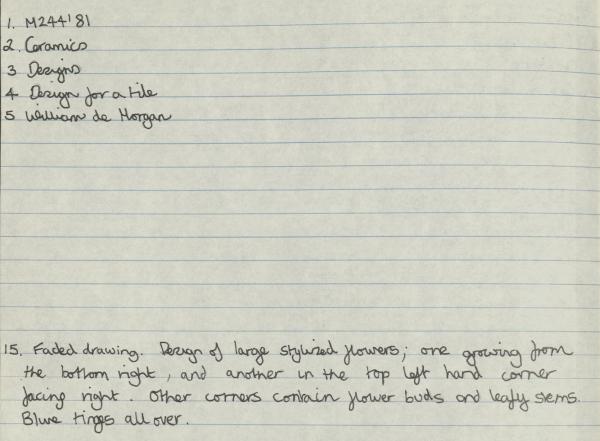 1. M244'81
2. Ceramics
3 Designs
4 Design for a tile
5 William de Morgan
15. Faded drawing. Design of large stylized flowers; one growing from
the bottom right, and another in the top left hand corner
facing right. Other corners contain flower buds and leafy stems.
Blue tinges all over.